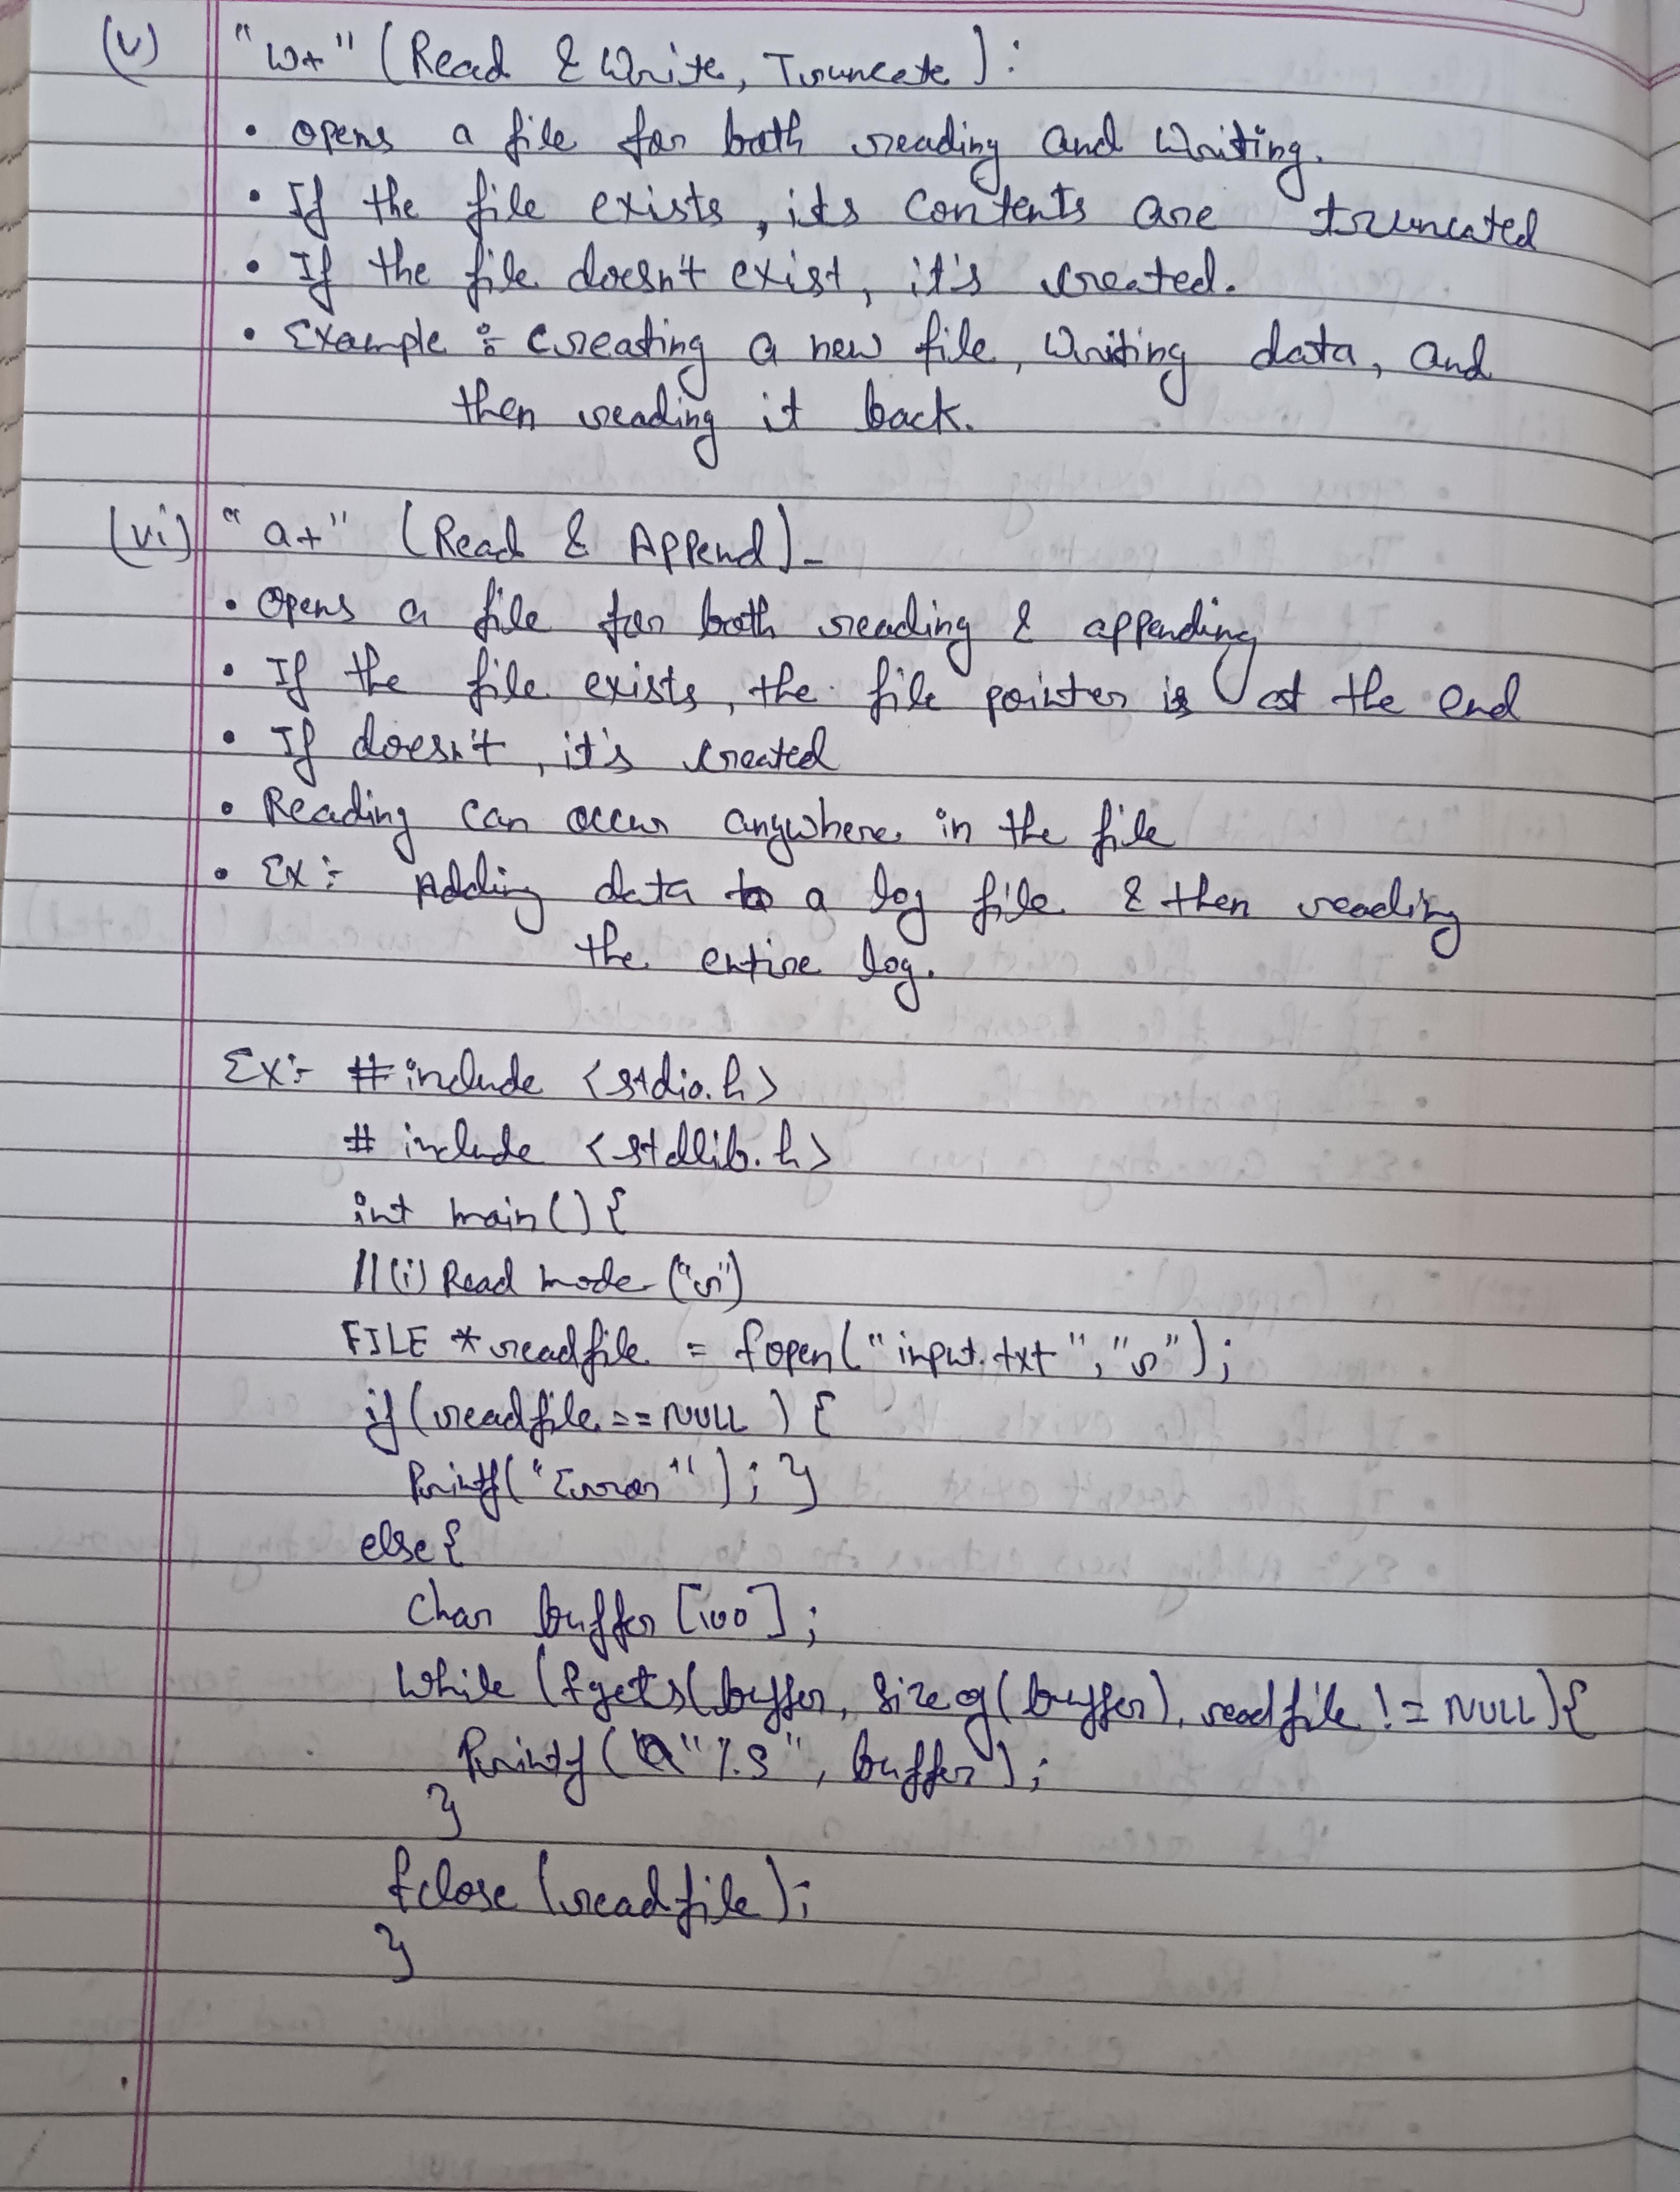 (v) "w+" (Read & Write, Truncate):
• opens a file for both reading and Writing.
• If the file exists, its contents are truncated
• If the file doesn't exist, it's created.
• Example :- Creating a new file, Writing data, and
then reading it back.
(vi) "a+" (Read & Append)-
• Opens a file for both reading & appending
• If the file exists, the file pointer is at the end
• If doesn't, it's created
• Reading can occur anywhere in the file
• Ex :- Adding data to a log file & then reading
the entire log.
Ex:- #include <stdio.h>
# include <stdlib.h>
int main(){
//(i) Read mode ("r")
FILE *readfile = fopen("input.txt","r");
if(readfile==NULL){
Printf("Error"); }
else{
Char buffer [100];
While (fgets(buffer, Sizeof(buffer), readfile != NULL){
Printf("%s", buffer);
}
fclose (readfile);
}